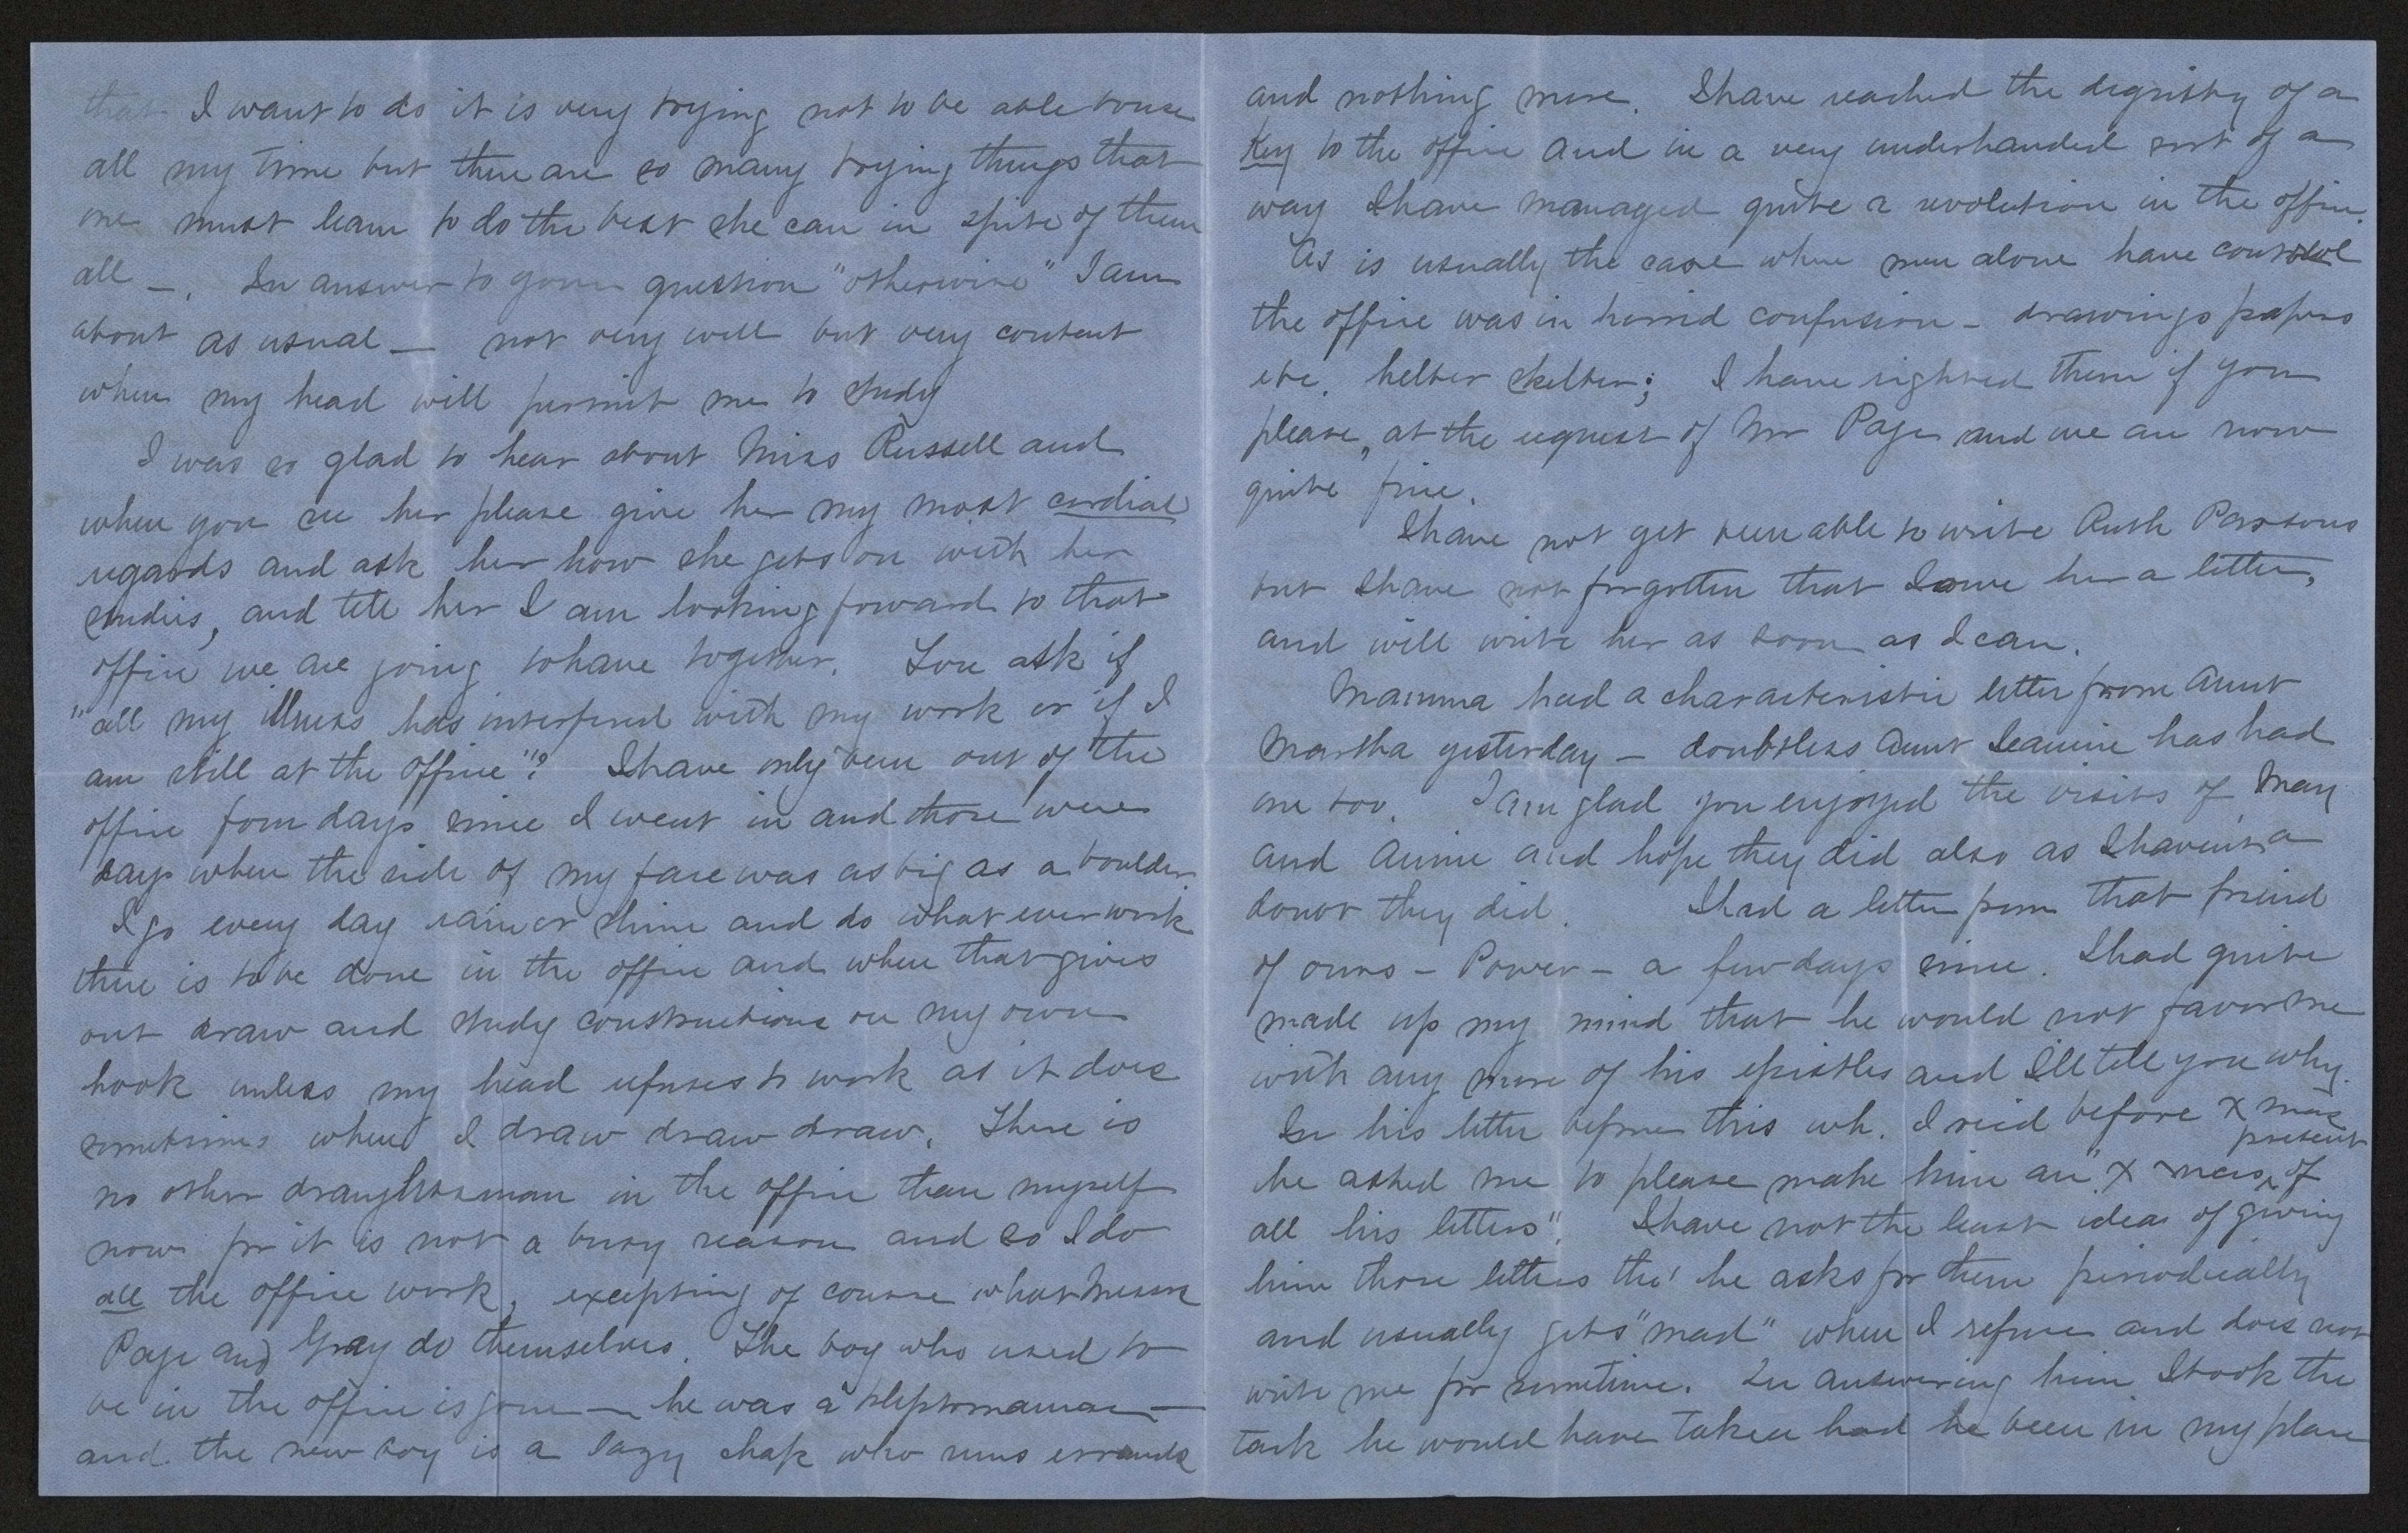 that I want to do it is very trying not to be able to use
all my time but there are so many trying things that
one must learn to do the best she can in spite of them
all —. In answer to your question "otherwise" I am
about as usual — not very well but very content
when my head will permit me to study
I was so glad to hear about Miss Russell and
when you see her please give her my most cordial
regards and ask her how she gets on with her
studies, and tell her I am looking forward to that
office we are going to have together. You ask if
"all my illness has interfered with my work or if I
am still at the office"? I have only been out of the
office four days since I went in and those were
days when the side of my face was as big as a boulder.
I go every day rain or shine and do what ever work
there is to be done in the office and when that gives
out draw and study constructions on my own
hook unless my head refuses to work as it does
sometimes when I draw draw draw. There is
no other draughtsman in the office than myself
now for it is not a busy season and so I do
all the office work, excepting of course what Messrs
Page and Gray do themselves. The boy who used to
be in the office is gone — he was a kleptomaniac —
and the new boy is a lazy chap who runs errands
and nothing more. I have reached the dignity of a
Key to the office and in a very underhanded sort of a
way I have managed quite a revolution in the office.
As is usually the case when men alone have control
the office was in horrid confusion — drawings papers
etc. helter skelter; I have righted them if you
please, at the request of Mr Page and we are now
quite fine.
I have not yet been able to write Ruth Parsons
but I have not forgotten that I owe her a letter,
and will write her as soon as I can.
Mamma had a characteristic letter from Aunt
Martha yesterday — doubtless Aunt Jeannie has had
one too. I am glad you enjoyed the visits of May
and Annie and hope they did also as I haven't a
doubt they did. I had a letter from that friend
of ours — Power — a few days since. I had quite
made up my mind that he would not favor me
with any more of his epistles and I'll tell you why.
In his letter before this wh. I rec'd before Xmas
present
he asked me to please make him an "Xmas of
all his letters". I have not the least idea of giving
him those letters tho' he asks for them periodically
and usually gets "mad" when I refuse and does not
write me for sometime. In answering him I took the
tack he would have taken had he been in my place